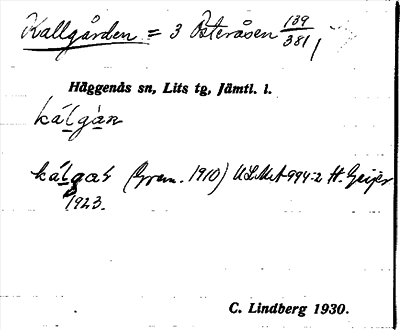 Kallgården = 3 Österåsen 139/381,
Häggenås sn, Lits tg, Jämtl. l.
kálgàn
kálgaṡ (Gren. 1910) ULMA 994:2 H. Geijer
1923.
C. Lindberg 1930.